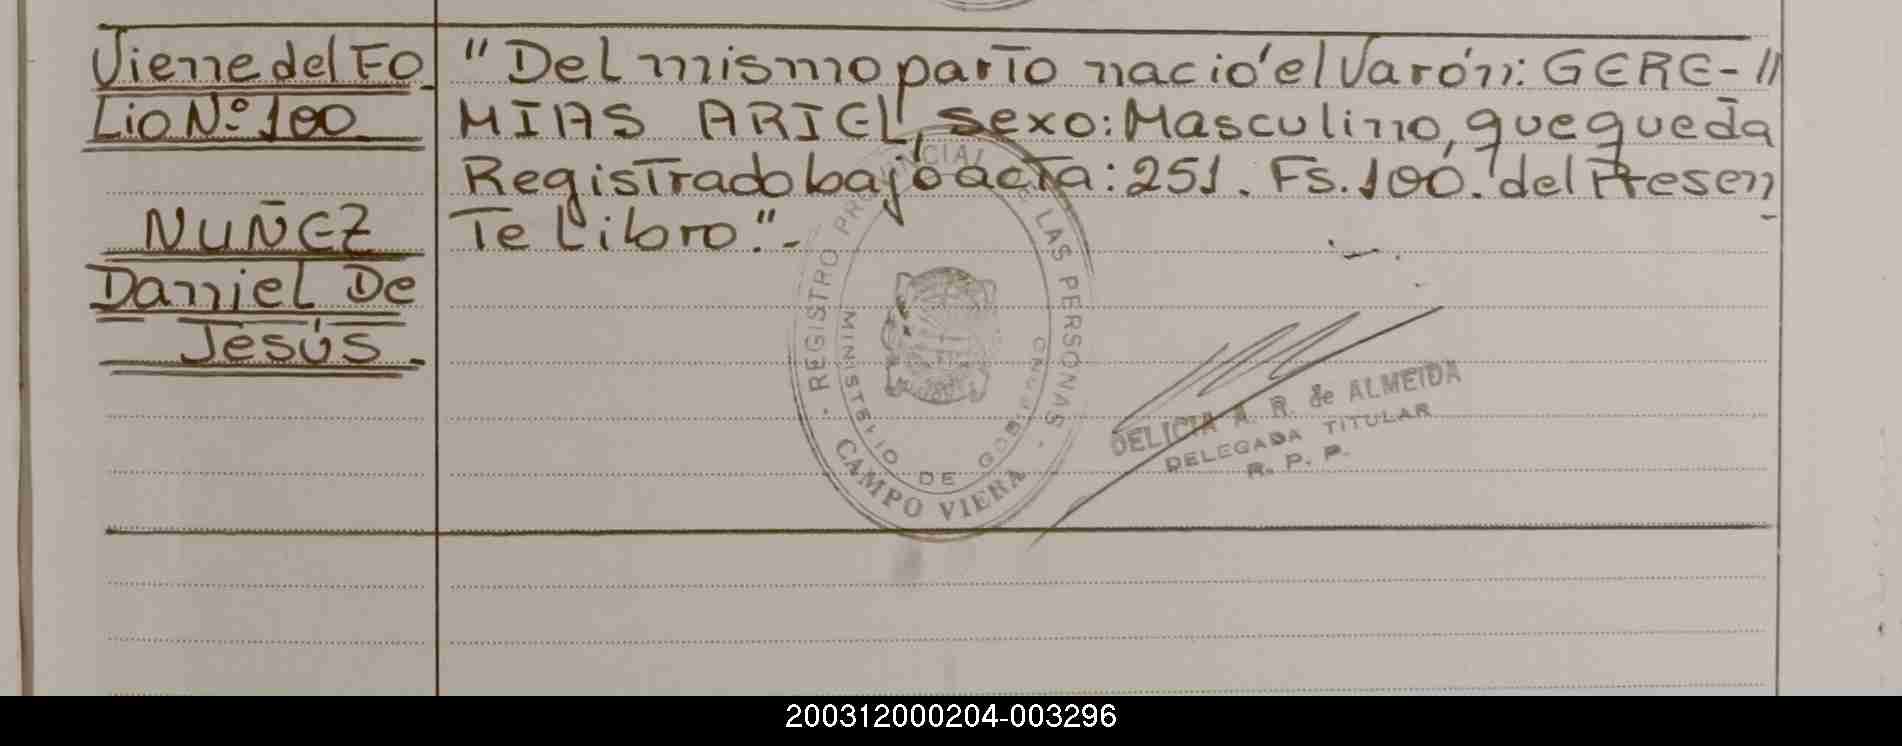 Viene del Fo
Lio Nº 100
NUÑEZ
Daniel De
Jesús.-
"Del mismo parto nació el Varón: GERE-//
MIAS ARIEL, sexo: Masculino, que queda
Registrado bajo acta: 251. Fs. 100. del Presen
Te Libro."-
REGISTRO PROVINCIAL DE LAS PERSONAS
MINISTERIO DE GOBIERNO
CAMPO VIERA
DELICIA A. R. de ALMEIDA
DELEGADA TITULAR
R. P. P.
200312000204-003296